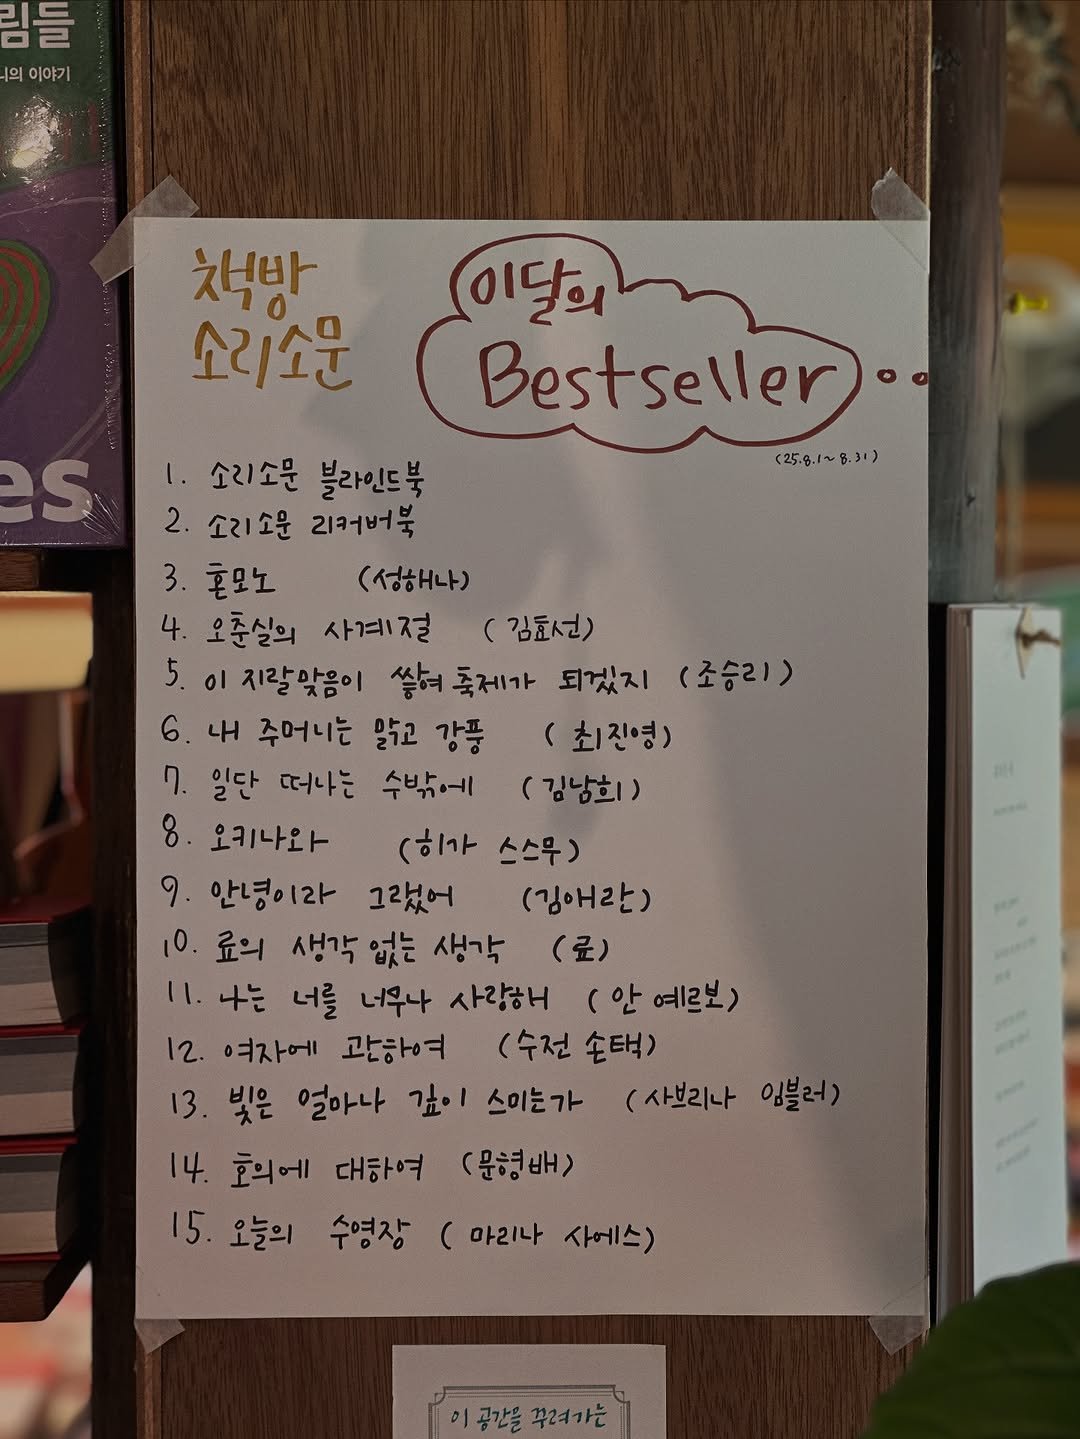 림들
니의 이야기
es
책방
소리소문
이달의
Bestseller
(25.8.1~8.31)
1. 소리소문 블라인드북
2. 소리소문 리커버북
3. 혼모노 (성해나)
4. 오춘실의 사계절 (김효선)
5. 이 지랄맞음이 쌓여 축제가 되겠지 (조승리)
6. 내 주머니는 맑고 강풍 (최진영)
7. 일단 떠나는 수밖에 (김남희)
8. 오키나와 (히가 스스무)
9. 안녕이라 그랬어 (김애란)
10. 료의 생각 없는 생각 (료)
11. 나는 너를 너무나 사랑해 (안 예르보)
12. 여자에 관하여 (수전 손택)
13. 빛은 얼마나 깊이 스미는가 (사브리나 임블러)
14. 호의에 대하여 (문형배)
15. 오늘의 수영장 (마리나 사에스)
이 공간을 꾸려가는